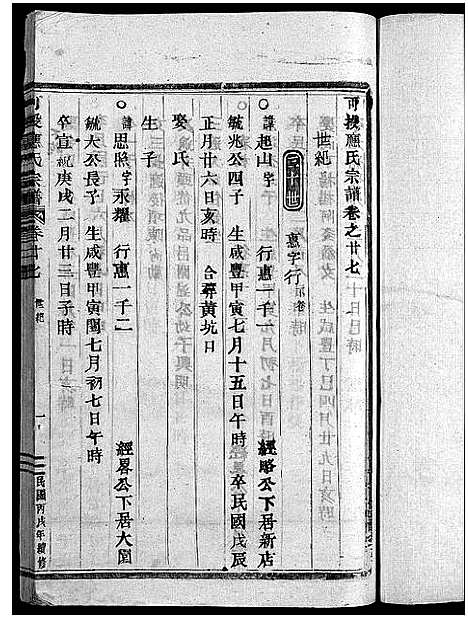 可投應氏宗譜卷之廿七
世紀
惠字行
諱起山字 行惠一千一 經略公下居新店
毓兆公四子 生咸豐甲寅七月十五日午時 卒民國戊辰
正月廿六日亥時 合葬黃坑日
娶氏
生子
諱思照字永耀 行惠一千二 經畧公下居大園
毓大公長子 生咸豐甲寅閏七月初七日午時
卒宣統庚戌二月廿三日子時
可投應氏宗譜 卷廿七 世紀 一 民國丙戌年續修